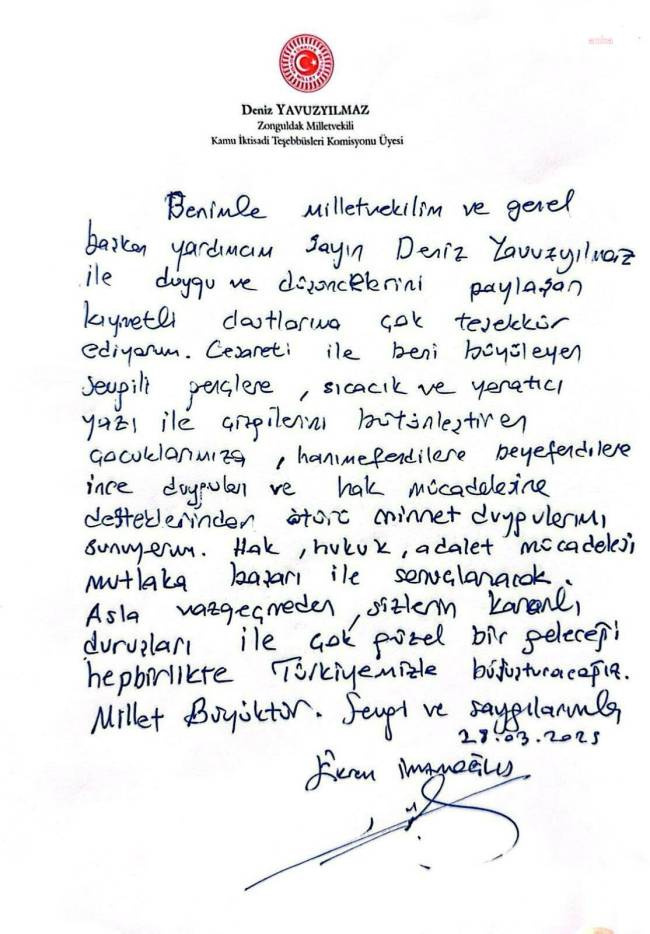 anka
Deniz YAVUZYILMAZ
Zonguldak Milletvekili
Kamu İktisadi Teşebbüsleri Komisyonu Üyesi
Benimle milletvekilim ve genel
başkan yardımcım Sayın Deniz Yavuzyılmaz
ile duygu ve düşüncelerini paylaşan
kıymetli dostlarıma çok teşekkür
ediyorum. Cesareti ile beni büyüleyen
sevgili gençlere, sıcacık ve yaratıcı
yazı ile çizgilerini bütünleştiren
çocuklarımıza, hanımefendilere beyefendilere
ince duyguları ve hak mücadelesine
desteklerinden ötürü minnet duygularımı
sunuyorum. Hak, hukuk, adalet mücadelesi
mutlaka başarı ile sonuçlanacak.
Asla vazgeçmeden, sizlerin kararlı
duruşları ile çok güzel bir geleceği
hepbirlikte Türkiyemizle buluşturacağız.
Millet Büyüktür. Sevgi ve saygılarımla
28.03.2025
Ekrem İmamoğlu